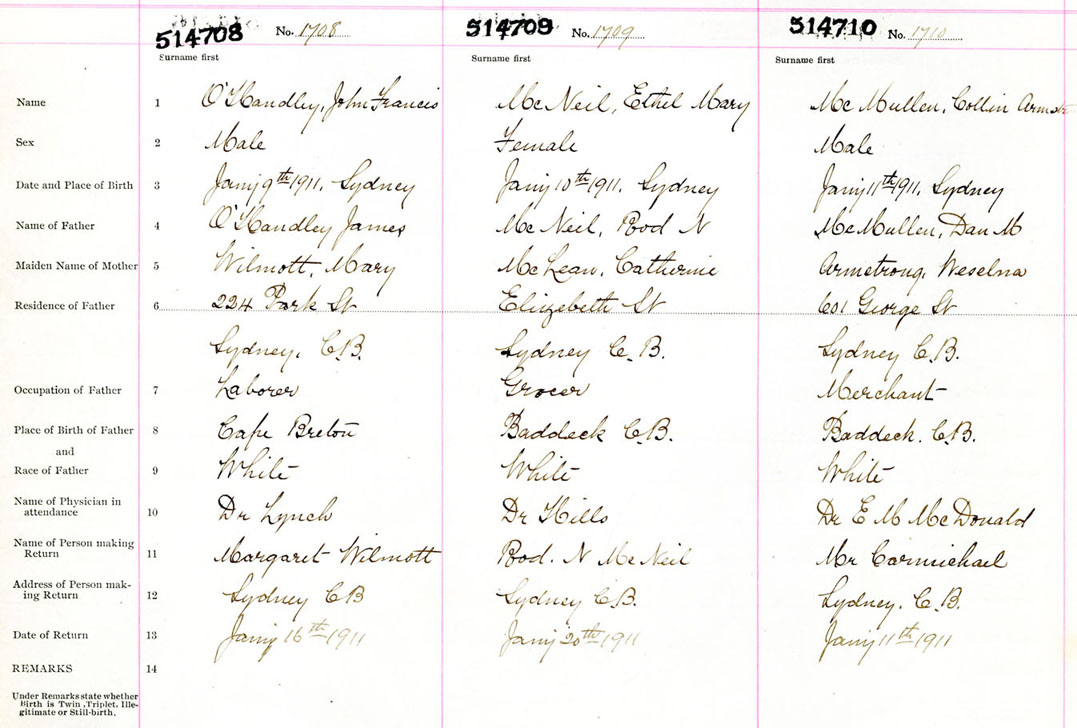 514708 No. 1708 514709 No. 1709 514710 No. 1710
Surname first Surname first Surname first
Name 1 O'Handley, John Francis Mc Neil, Ethel Mary Mc Mullen, Collin
Sex 2 Male Female Male
Date and Place of Birth 3 Jany 9th 1911. Sydney Jany 10th 1911. Sydney Jany 11th 1911. Sydney
Name of Father 4 O'Handley James Mc Neil, Rod N McMullen, Dan M
Maiden Name of Mother 5 Wilmott, Mary McLean, Catherine Armstrong, Weselna
Residence of Father 6 224 Park St Elizebeth St 601 George St
Sydney, C.B. Sydney C.B. Sydney C.B.
Occupation of Father 7 Laborer Grocer Merchant
Place of Birth of Father 8 Cape Breton Baddeck C.B. Baddeck. C.B.
and
Race of Father 9 White White White
Name of Physician in
attendance 10 Dr Lynch Dr Hills Dr E M McDonald
Name of Person making
Return 11 Margaret Wilmott Rod. N McNeil Mr Carmichael
Address of Person mak-
ing Return 12 Sydney CB Sydney C.B. Sydney. C.B.
Date of Return 13 Jany 16th 1911 Jany 20th 1911 Jany 11th 1911
REMARKS 14
Under Remarks state whether
Birth is Twin, Triplet, Ille-
gitimate or Still-birth.